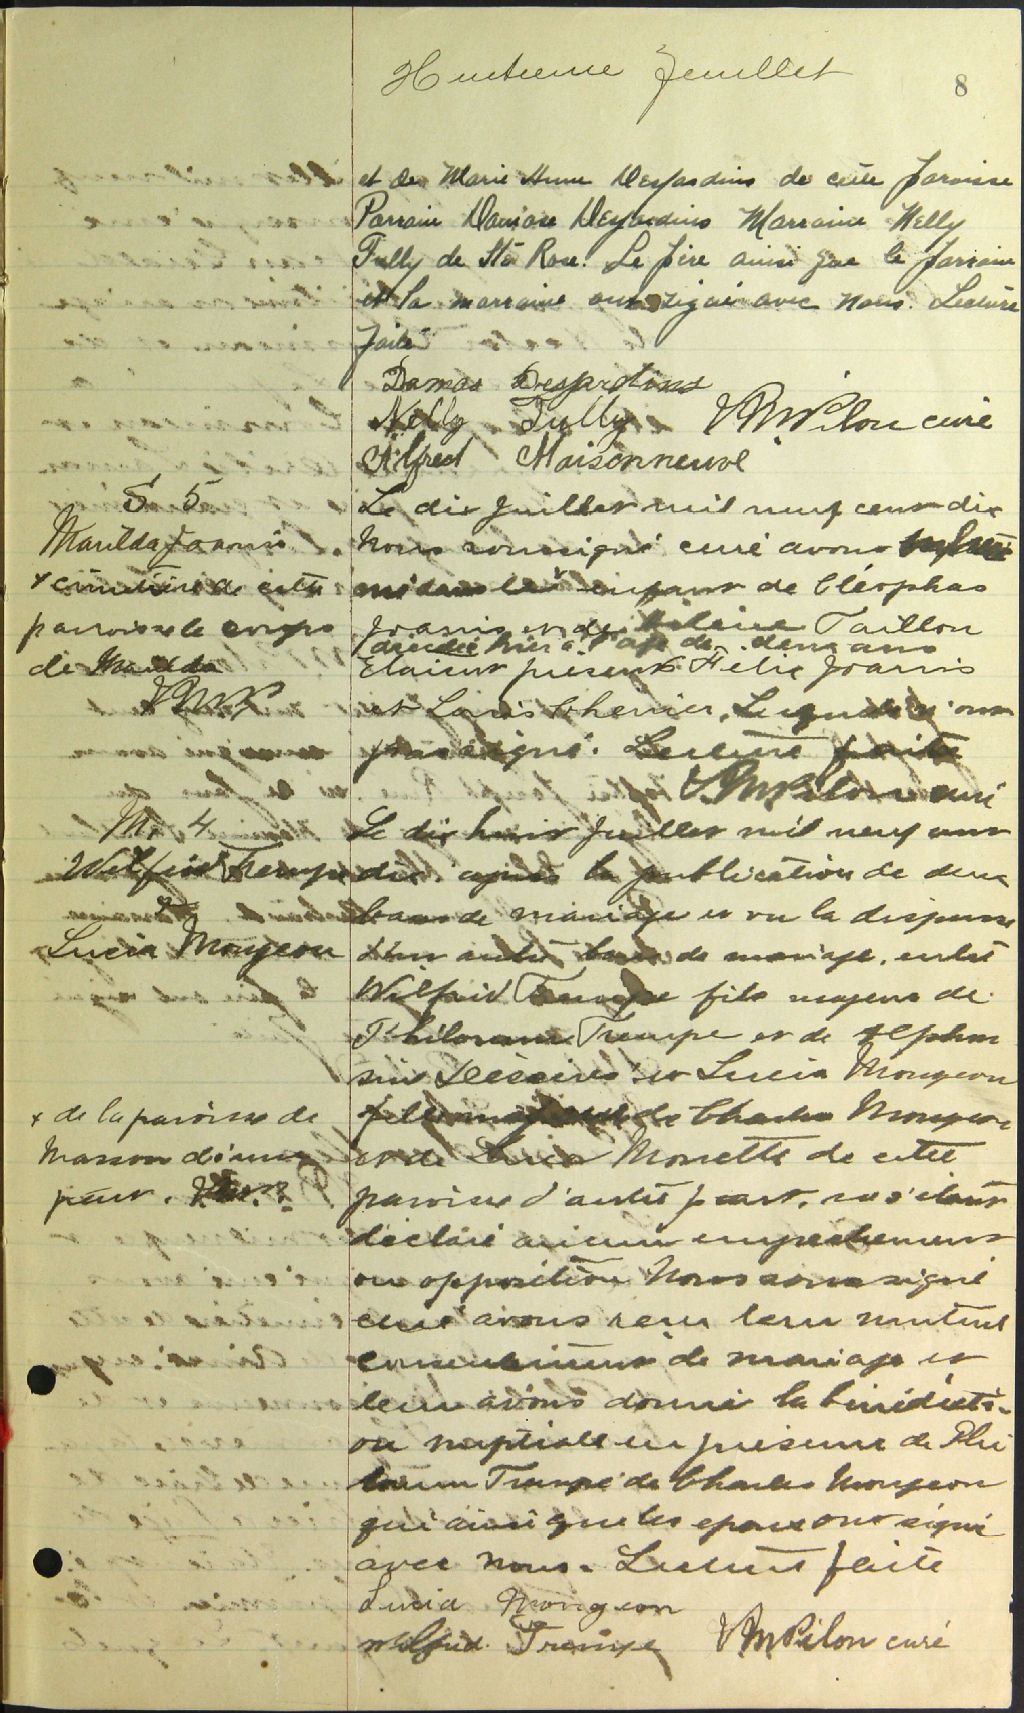 Huitieme feuillet
8
et de Marie Anne Desjardins de cette paroisse
Parrain Damase Desjardins Marraine Nelly
Tully de Ste Rose. Le père ainsi que le parrain
et la marraine ont signé avec nous. Lecture
faite
Damas Desjardins
Nelly Tully
JMPilon curé
Alfred Maisonneuve
S 5
Matilda Joannis
x cimetière de cette
paroisse le corps
de Matilda
Le dix juillet mil neuf cent dix
Nous soussigné curé avons
enfant de Cléophas
Joannis et de Taillon
décédé hier à l'age de deux ans
Etaient présents Felix Joannis
et Louis Chenier, Lesquels n'ont
pas signé. Lecture faite
JMPilon curé
M. 4
Wilfrid Trempe
&
Lucia Mongeon
Le dix huit juillet mil neuf cent
dix. après la publication de deux
bans de mariage et vu la dispense
d'un autre ban de mariage, entre
Wilfrid Trempe fils majeur de
Philorum Trempe et de Alphon
sine et Lucia Mongeon
x de la paroisse de
Masson d'une
part.
fille de Charles Mongeon
et de Lucie Monette de cette
paroisse d'autre part, ne s'étant
déclaré aucun empechement
ou opposition Nous soussigné
curé avons reçu leur mutuel
consentement de mariage et
leur avons donné la bénédicti-
on nuptiale en présence de Phi
lorum Trempe de Charles Mongeon
qui ainsi que les epoux ont signé
avec nous. Lecture faite
Lucia Mongeon
Wilfrid Trempe
JMPilon curé